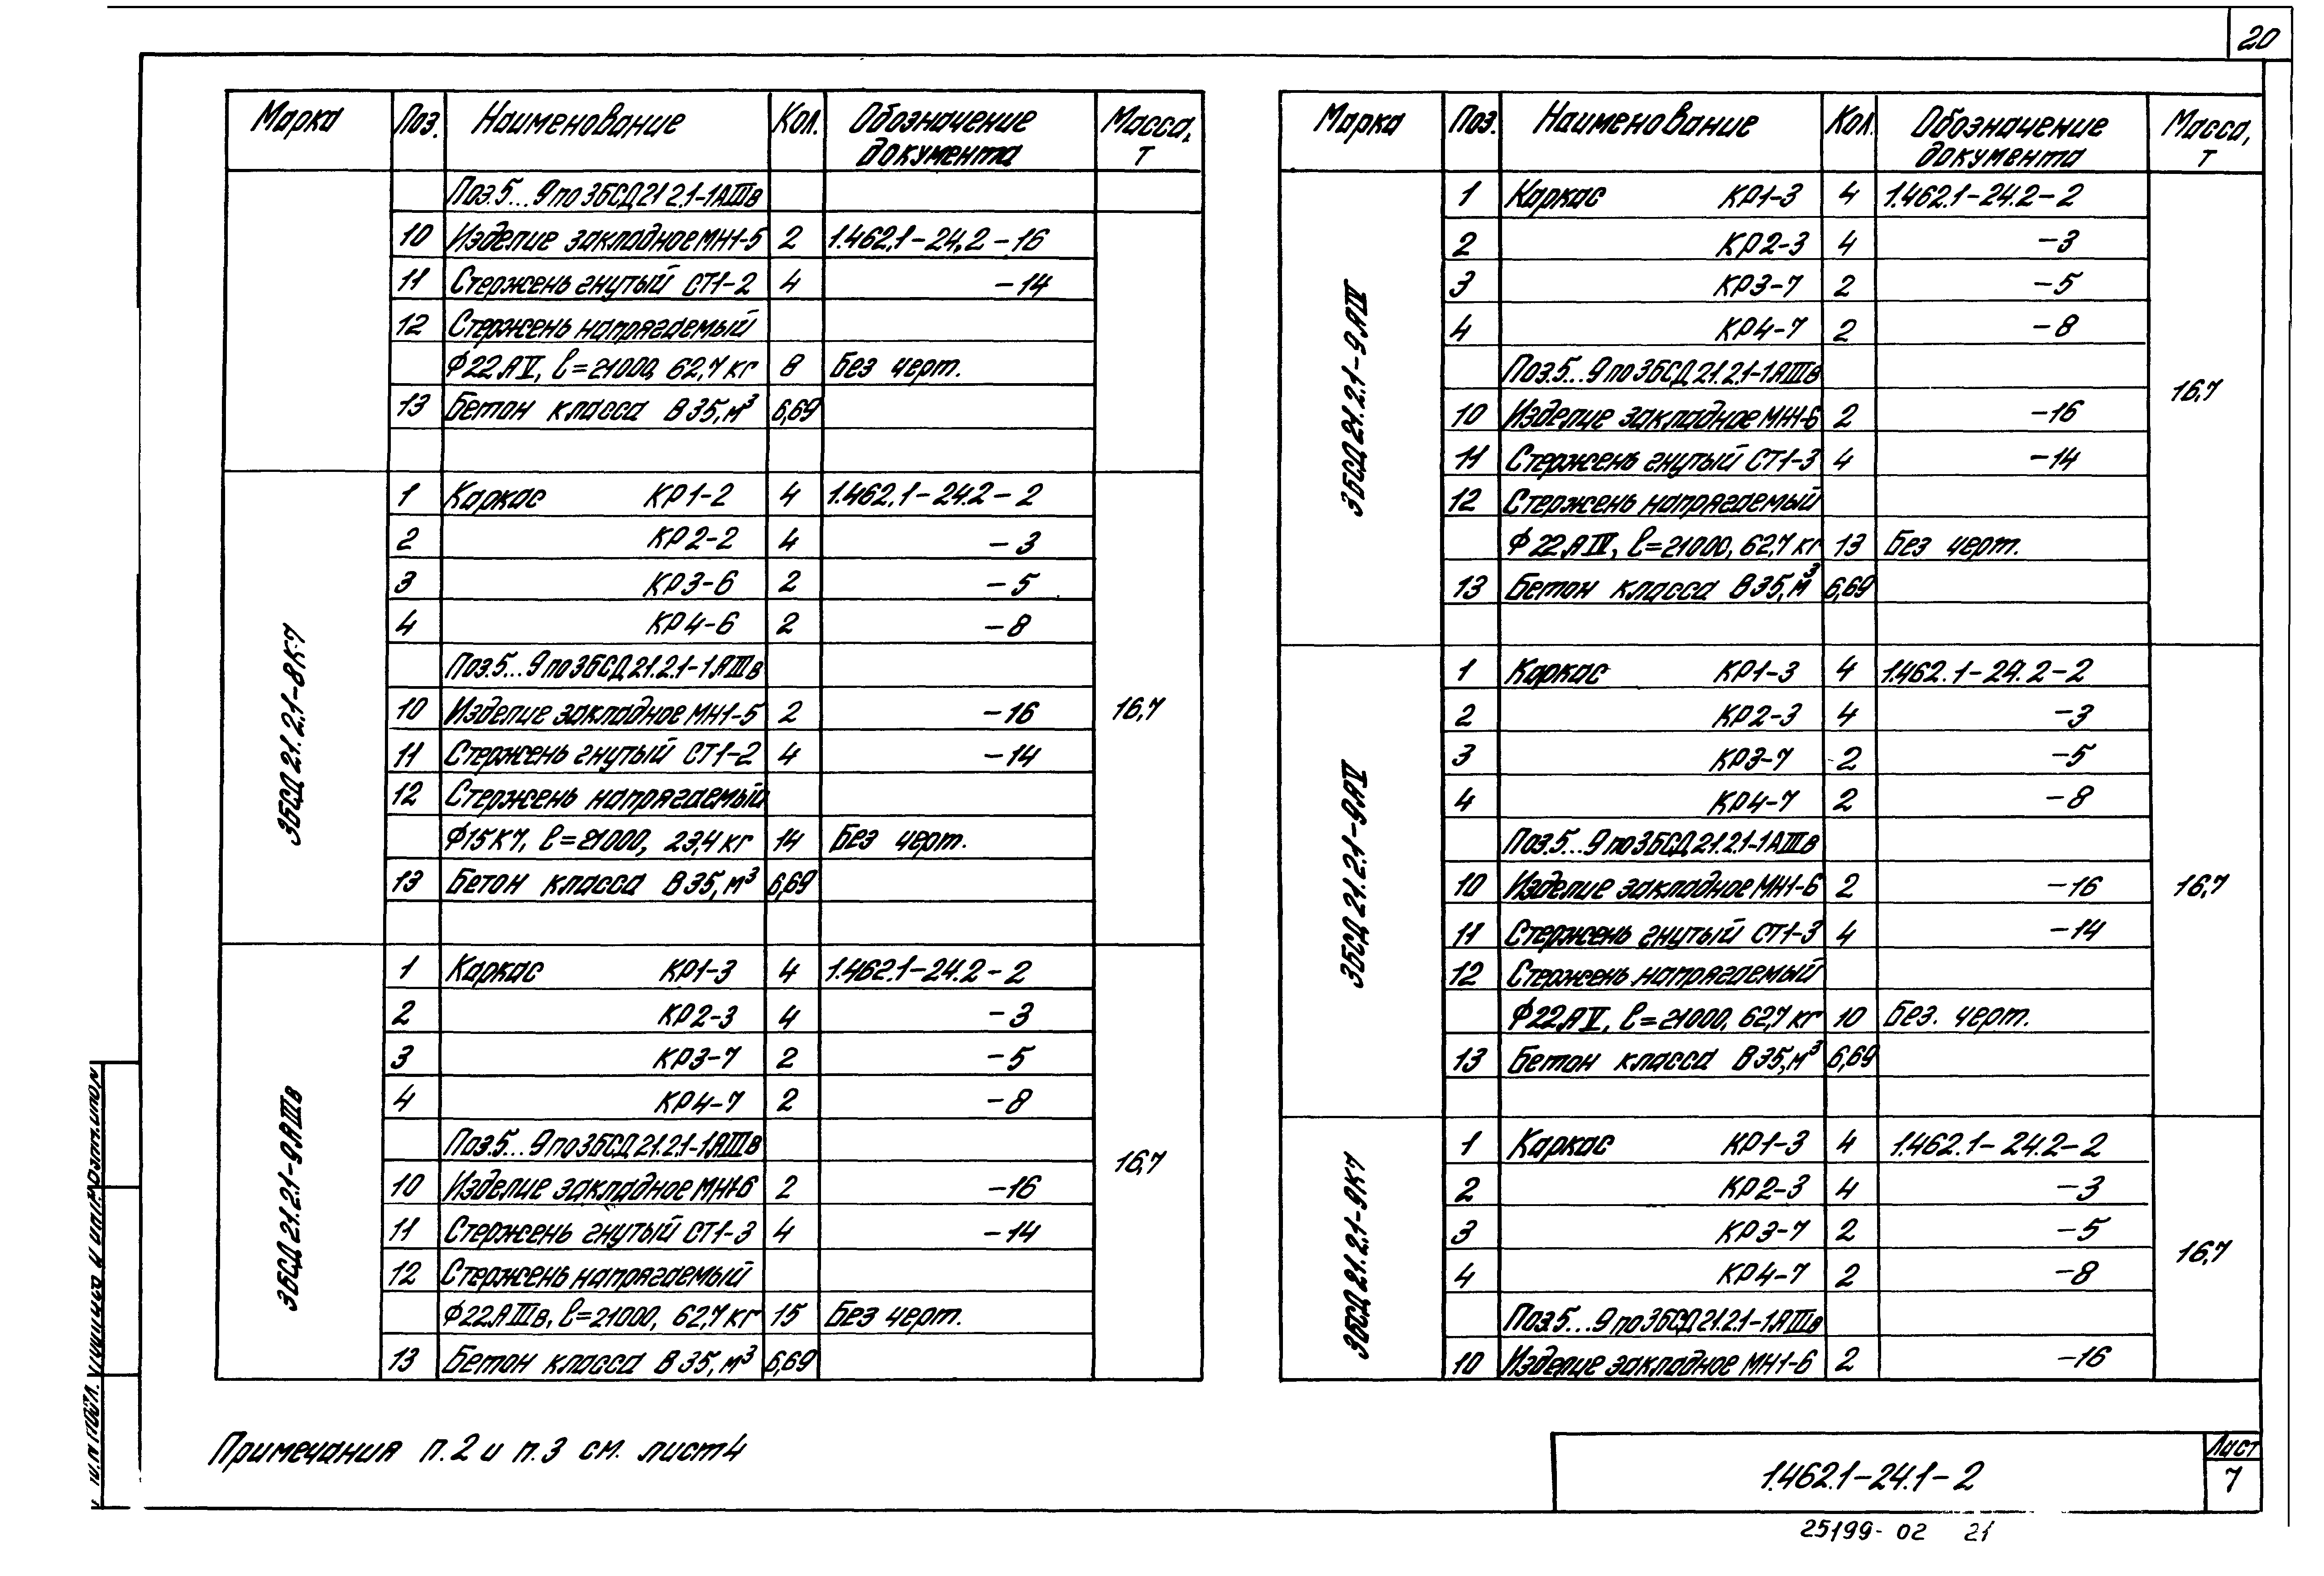 20
Марка Поз. Наименование Кол. Обозначение документа Масса, т
Поз.5...9 по 3БСД21 2.1-1АIIIв
10 Изделие закладное МН1-5 2 1.462.1-24.2-16
11 Стержень гнутый СТ1-2 4 -14
12 Стержень напрягаемый
Ф22АV, ℓ=21000, 62,7 кг 8 Без черт.
13 Бетон класса В35, м³ 6,69
3БСД 21.2.1-8К7
1 Каркас КР1-2 4 1.462.1-24.2-2
2 КР2-2 4 -3
3 КР3-6 2 -5
4 КР4-6 2 -8
Поз.5...9 по 3БСД21.2.1-1АIIIв
10 Изделие закладное МН1-5 2 -16 16,7
11 Стержень гнутый СТ1-2 4 -14
12 Стержень напрягаемый
Ф15К7, ℓ=21000, 23,4 кг 14 Без черт.
13 Бетон класса В35, м³ 6,69
3БСД 21.2.1-9АIIIв
1 Каркас КР1-3 4 1.462.1-24.2-2
2 КР2-3 4 -3
3 КР3-7 2 -5
4 КР4-7 2 -8
Поз.5...9 по 3БСД21.2.1-1АIIIв 16,7
10 Изделие закладное МН1-6 2 -16
11 Стержень гнутый СТ1-3 4 -14
12 Стержень напрягаемый
Ф22АIIIв, ℓ=21000, 62,7 кг 15 Без черт.
13 Бетон класса В35, м³ 6,69
Марка Поз. Наименование Кол. Обозначение документа Масса, т
3БСД 21.2.1-9АIV
1 Каркас КР1-3 4 1.462.1-24.2-2
2 КР2-3 4 -3
3 КР3-7 2 -5
4 КР4-7 2 -8
Поз.5...9 по 3БСД21.2.1-1АIIIв 16,7
10 Изделие закладное МН1-6 2 -16
11 Стержень гнутый СТ1-3 4 -14
12 Стержень напрягаемый
Ф22АIV, ℓ=21000, 62,7 кг 13 Без черт.
13 Бетон класса В35, м³ 6,69
3БСД 21.2.1-9АV
1 Каркас КР1-3 4 1.462.1-24.2-2
2 КР2-3 4 -3
3 КР3-7 2 -5
4 КР4-7 2 -8
Поз.5...9 по 3БСД21.2.1-1АIIIв
10 Изделие закладное МН1-6 2 -16 16,7
11 Стержень гнутый СТ1-3 4 -14
12 Стержень напрягаемый
Ф22АV, ℓ=21000, 62,7 кг 10 Без. черт.
13 Бетон класса В35, м³ 6,69
3БСД 21.2.1-9К7
1 Каркас КР1-3 4 1.462.1-24.2-2
2 КР2-3 4 -3
3 КР3-7 2 -5
4 КР4-7 2 -8 16,7
Поз.5...9 по 3БСД21.2.1-1АIIIв
10 Изделие закладное МН1-6 2 -16
Примечания п.2 и п.3 см. лист 4
1.462.1-24.1-2
Лист
7
25199-02 21